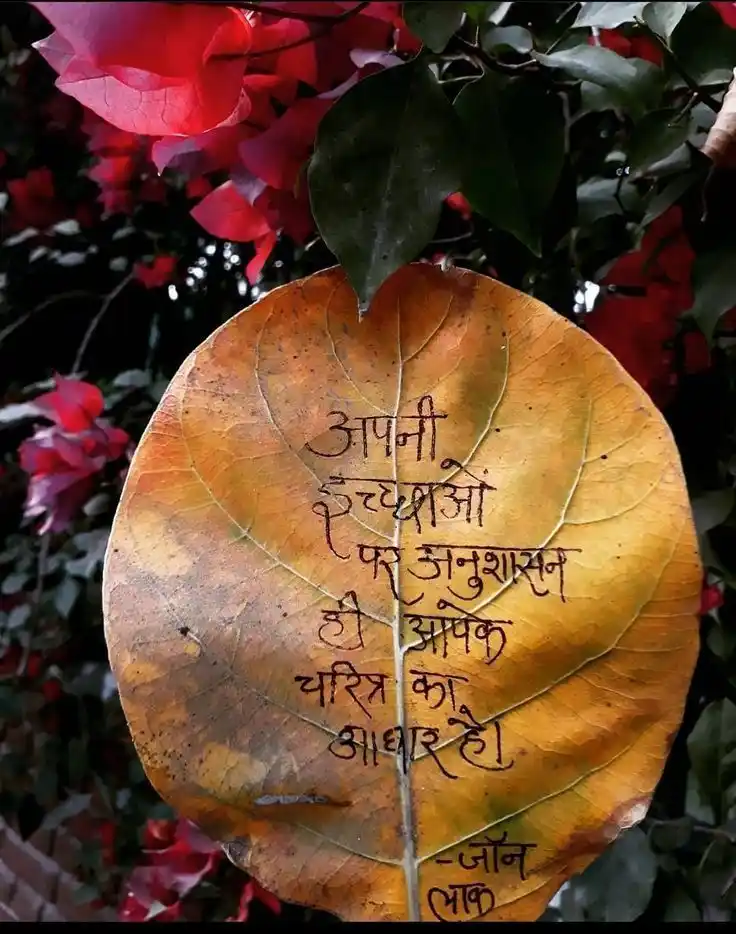 अपनी
इच्छाओं
पर अनुशासन
ही आपके
चरित्र का
आधार है।
-जॉन
लाक